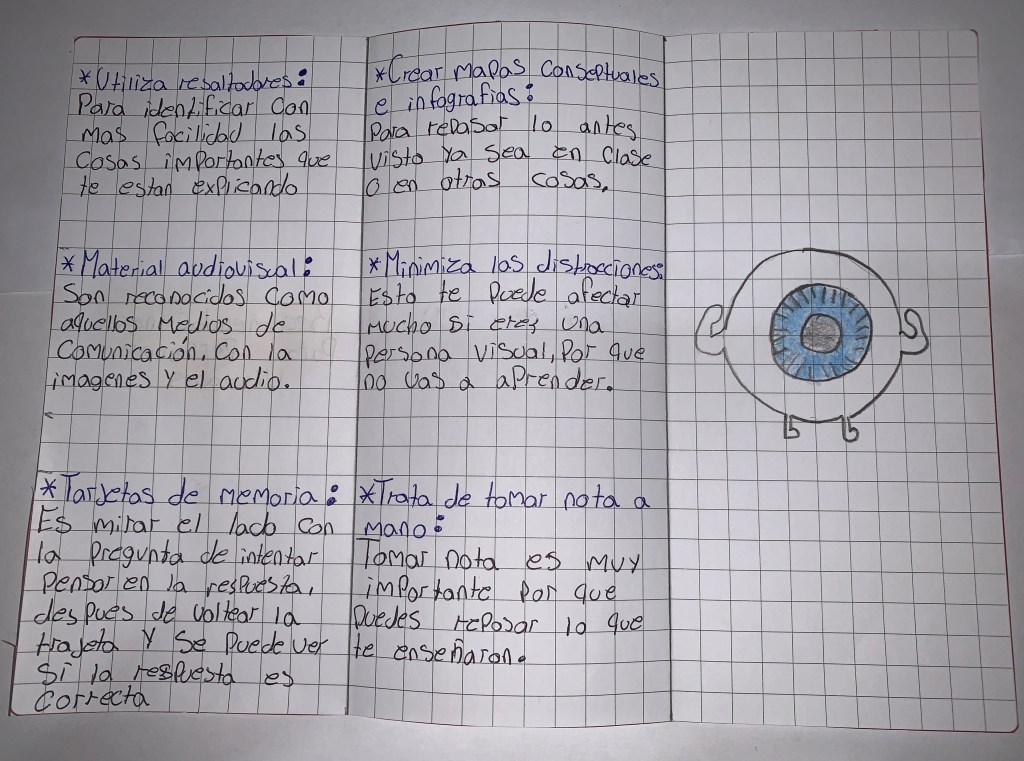 *Utiliza resaltadores:
Para identificar con
mas facilidad las
cosas importantes que
te estan explicando
*Material audiovisual:
Son reconocidos como
aquellos medios de
comunicación, con la
imagenes y el audio.
*Tarjetas de memoria:
Es mirar el lado con
la pregunta de intentar
pensar en la respuesta,
despues de voltear la
trajeta y se puede ver
si la respuesta es
correcta
*Crear mapas conseptuales
e infografias:
Para repasar lo antes
visto ya sea en clase
o en otras cosas.
*Minimiza las distracciones:
Esto te puede afectar
mucho si eres una
persona visual, por que
no vas a aprender.
*Trata de tomar nota a
mano:
Tomar nota es muy
importante por que
puedes repasar lo que
te enseñaron.